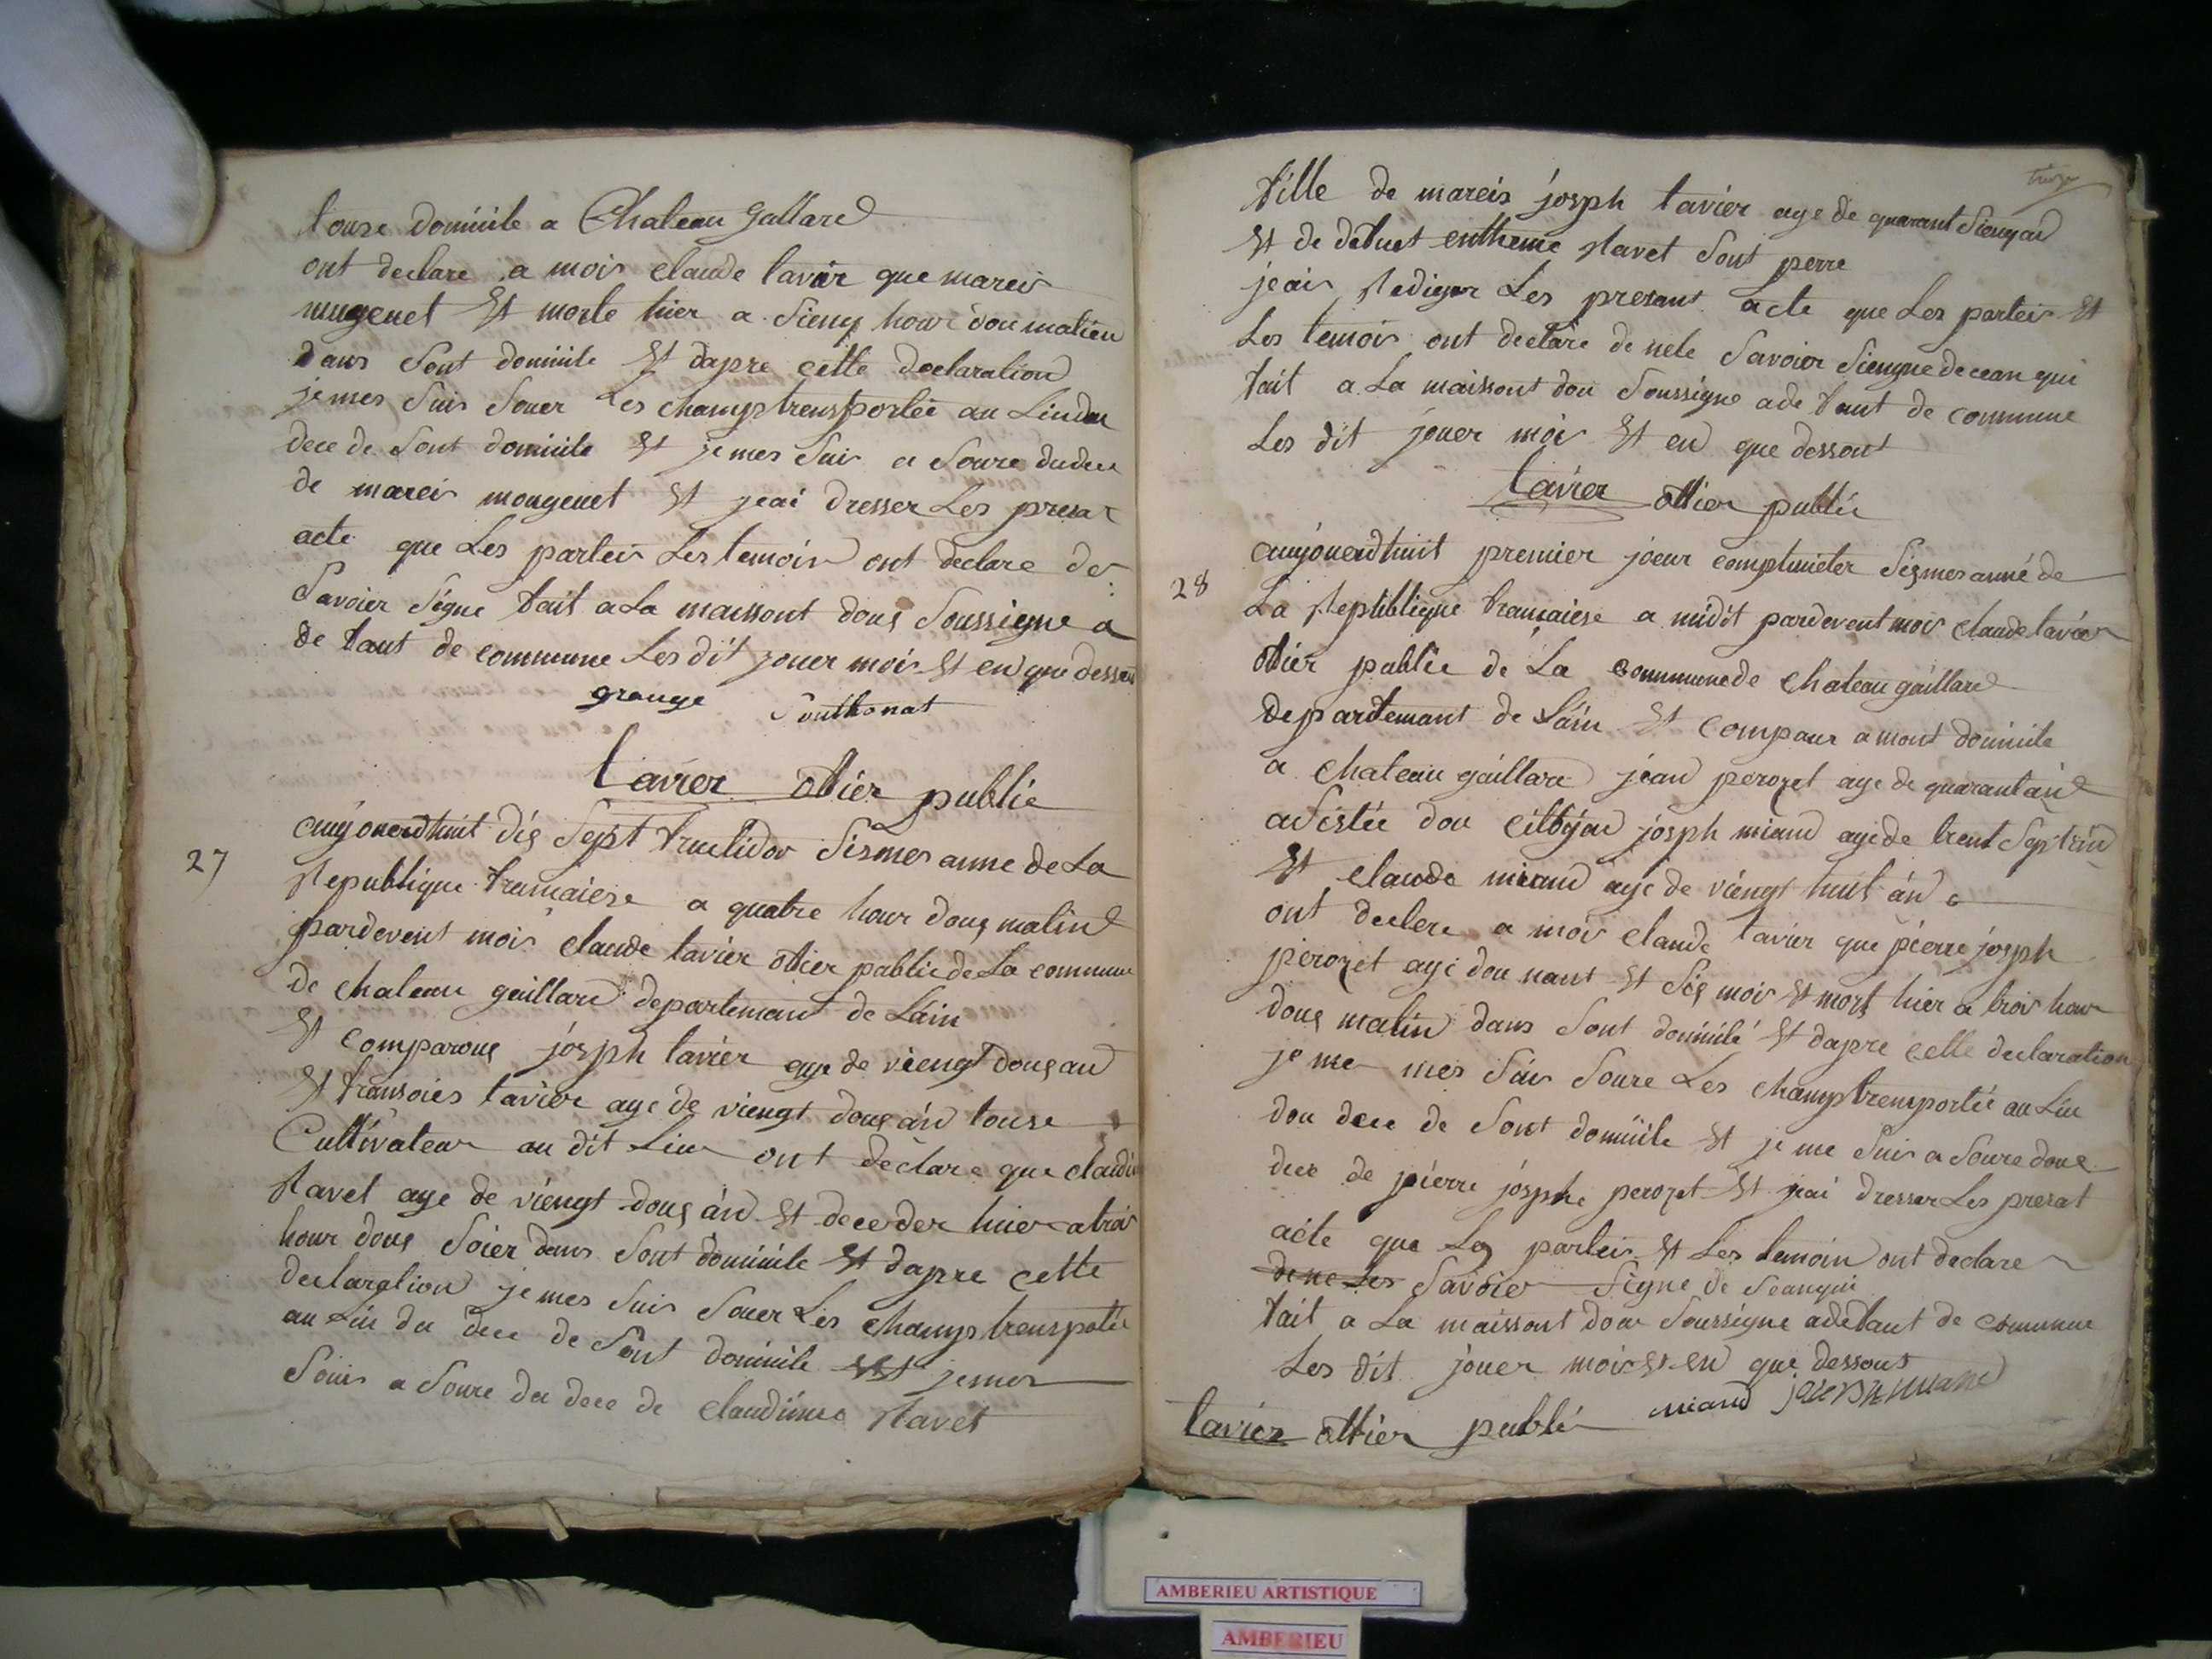 touse domiiile a Chateau gallard
ont declare a mois claude tavier que mareis
mugenet Et morte hier a sienq hour dou matien
dans sont domiiile Et dapre cette declaration
jemes suis souer Les champ trensportée au Lindou
dece de sont domiiile Et jemes suis a soure dudece
de mareis mougenet Et jeai dresser Les presat
acte que Les parteis Les temoin ont declare de
savoier signe fait a La maissont douq soussigne a
de faut de commune Les dit jouer mois Et en que dessus
grange Southonat
tavier ofier public
27
aujouerdhuit dis sept fructidor sismes anne de La
Republique francaiese a quatre hour douq matin
pardevent mois claude tavier ofier public de La commune
de chateau gaillard departemant de Lain
Et comparouq josph tavier age de viengt douq an
Et fransoies tavier age de viengt douq an touse
Cultivateur au dit Lieu ont declare que claudi
Ravet age de viengt douq an Et deceder hier a trois
hour douq soier dans sont domiiile Et dapre cette
declaration jemes suis souer Les champ trenspotée
au Liu du dece de sont domiiile Et jemes
souis a soure du dece de claudinne Ravet
fille de mareis josph tavier age de quarant sienq an
Et de defuet entheme Ravet sont perre
jeais Rediger Les presant acte que Les parteis Et
Les temois ont declare de nele savoier siengne de cean qui
fait a La maissont dou soussigne a de faut de commune
Les dit jouer mois Et en que dessout
tavier offier public
28
aujouerdhuit premier joeur complimeter sismes anné de
La Republique francaiese a midit pardevent mois claude tavier
ofier public de La commune de chateau gaillard
departemant de Lain Et compaur a mont domiiile
a chateau gaillard jean perozet age de quarant an
asistée dou citoyen josph miand age de trent sept an
Et claude miand age de viengt huit an
ont declere a mois claude tavier que pierre josph
perozet age dou nant Et sis mois Et mort hier a trois hour
douq matin dans sont domiiilé Et dapre cette declaration
je me mes suis soure Les champ trensportée au Liu
dou dece de sont domiiile Et je me suis a soure douq
dece de pierre josphe perozet Et jeai dresser Les presat
acte que Les parteis Et Les temoin ont declare
de ne Les savoier signe de seanqui
fait a La maissont dou soussigne a defaut de commune
Les dit jouer mois Et en que dessous
miand
tavier offier public
AMBERIEU ARTISTIQUE
AMBERIEU